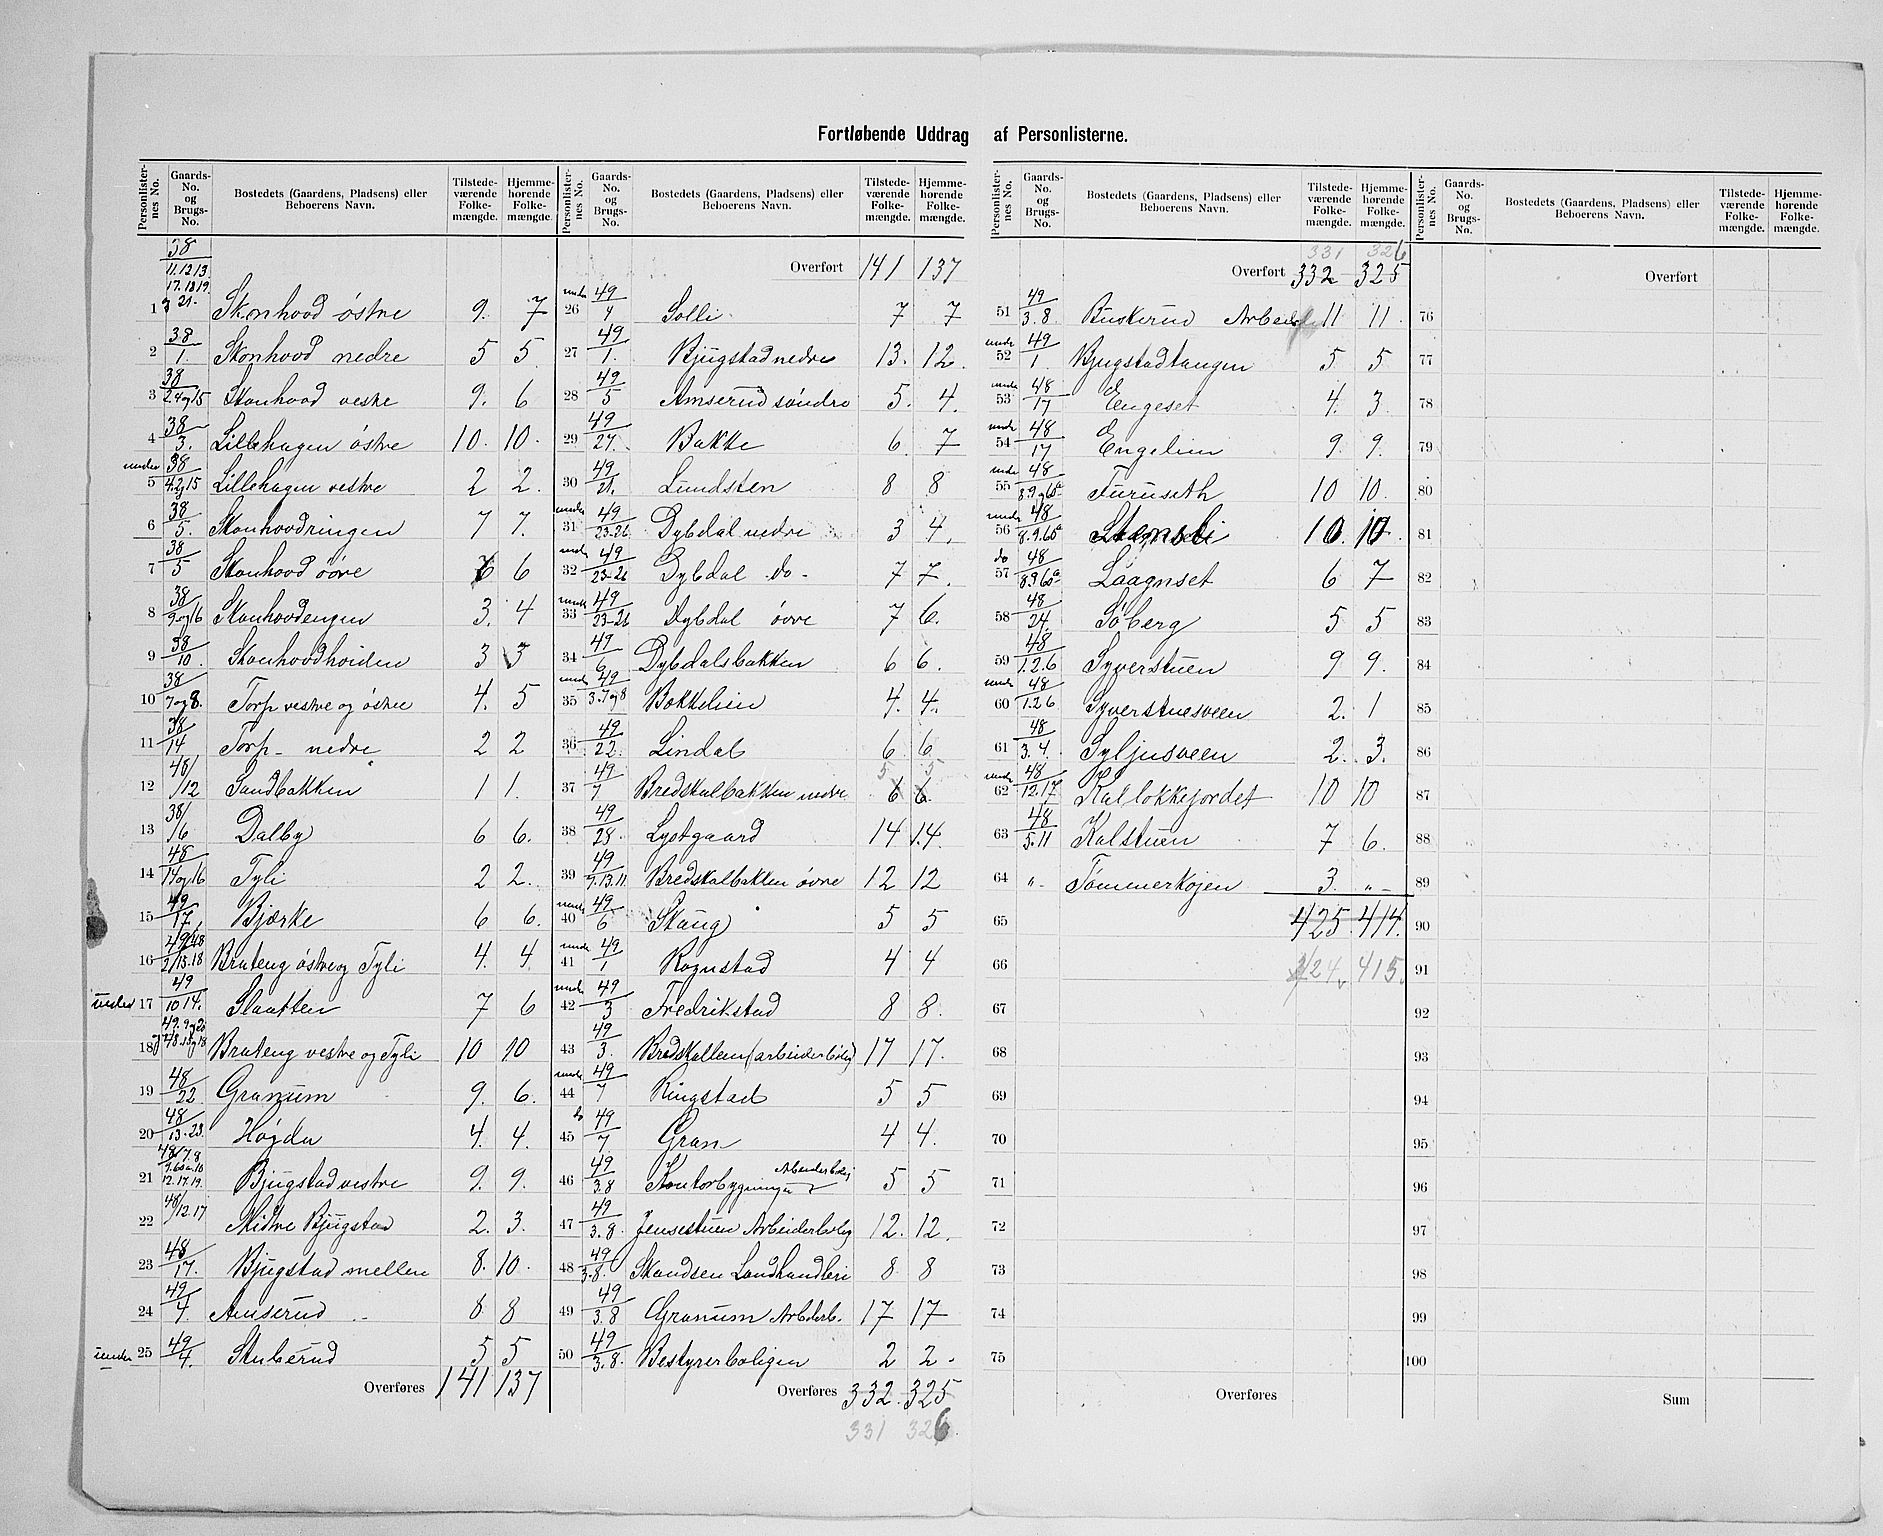 Fortløbende Uddrag af Personlisterne.
Personlister-nes No. Gaards-No. og Brugs-No. Bostedets (Gaardens, Pladsens) eller Beboerens Navn. Tilstede-værende Folke-mængde. Hjemme-hørende Folke-mængde.
38/11.12.13 17.18.19. 21.
1 Skonhovd østre 9. 7
2 38/1. Skonhovd nedre 5 5.
3 38/2.4og15 Skonhovd vestre 9. 6
4 38/3. Lillehagen østre 10. 10.
under 5 38/4.2og15 Lillehagen vestre 2 2.
6 38/5. Skonhovdringen 7 7.
7 38/5 Skonhovd øvre 6 6
8 38/9og16 Skonhovdengen 3. 4
9 38/10. Skonhovdhøiden 3 3
10 38/7og8. Torp vestre og østre 4. 5
11 38/14 Torp nedre 2 2
12 48/12 Sandbakken 1 1.
13 38/6 Dalby 6 6.
14 48/14og16 Tyli 2 2.
15 49/17. Bjærke 6 6.
16 49/2 48/13.18 Brateng østre og Tyli 4. 4
under 17 49/10 14. Slaatten 7 6
18 49. 9og20 og 48.13og18 Brateng vestre og Tyli 10 10
19 48/22 Granum 9. 6.
20 48/13.23. Høgda 4. 4.
21 48/7.8 9.60a.10 12.17.19. Bjugstad vestre 9. 9.
22 48/12.17 Midtre Bjugstad 2. 3.
23 48/17. Bjugstad mellem 8. 10.
24 49/4. Amserud 8 8
under 25 49/4. Stuberud 5 5
Overføres 141 137
Personlister-nes No. Gaards-No. og Brugs-No. Bostedets (Gaardens, Pladsens) eller Beboerens Navn. Tilstede-værende Folke-mængde. Hjemme-hørende Folke-mængde.
Overført 141 137
under 26 49/4 Solli 7 7
27 49/1. Bjugstad nedre 13. 12.
28 49/5 Amserud søndre 5. 4.
29 49/27. Bakke 6. 7
30 49/21. Lundsten 8 8
under 31 49/23-26. Dybdal nedre 3 4.
under 32 49/23-26 Dybdal do- 7 7.
under 33 49/23-26 Dybdal øvre 7 6.
34 49/6 Dybdalsbakken 6 6.
under 35 49/3.7og8 Bakkelien 4. 4.
36 49/22. Lindal 6 6
5 5
37 49/7 Bredskalbakken nedre 6 6.
38 49/28. Lystgaard 14 14.
39 49/9.13.11. Bredskalbakken øvre 12 12
under 40 49/6 Skaug 5 5
under 41 49/1 Rognstad 4 4
under 42 49/3 Fredrikstad 8 8.
43 49/3. Bredskallen (arbeiderbolig) 17 17.
under 44 49/7 Ringstad 5 5
do 45 49/7 Gran 4 4.
46 49/3.8 Kontorbygningen Arbeiderbolig 5 5
47 49/3.8. Jensestuen Arbeiderbolig 12. 12.
48 49/3.8. Skandsen Landhandleri 8 8
49 49/3.8 Granum Arbderb. 17 17
50 49/3.8. Bestyrerboligen 2 2.
Overføres 332. 325
331 326.
Personlister-nes No. Gaards-No. og Brugs-No. Bostedets (Gaardens, Pladsens) eller Beboerens Navn. Tilstede-værende Folke-mængde. Hjemme-hørende Folke-mængde.
331 326
Overført 332 325
51 49/3.8. Buskerud Arbeidsf 11 11.
under 52 49/1. Bjugstadtangen 5 5
under 53 48/17 Engeset 4. 3.
under 54 48/17 Engelien 9. 9.
under 55 48/8.9og60a Furuseth 10 10.
under 56 48/8.9.60a 10. 10.
do 57 48/8.9.60a Laagnset 6 7
58 48/24. Søberg 5 5
59 48/1.2.6 Syverstuen 9 9.
under 60 48/1.2.6 Syverstuesveen 2. 1
61 48/3.4. Syljusveen 2. 3.
under 62 48/12.17 Kallokkejordet 10 10
63 48/5.11 Kalstuen 7 6.
64 "- Tømmerkojen 3. "-
65 425. 414.
66 424. 415.
67
68
69
70
71
72
73
74
75
Overføres
Personlister-nes No. Gaards-No. og Brugs-No. Bostedets (Gaardens, Pladsens) eller Beboerens Navn. Tilstede-værende Folke-mængde. Hjemme-hørende Folke-mængde.
Overført
76
77
78
79
80
81
82
83
84
85
86
87
88
89
90
91
92
93
94
95
96
97
98
99
100
Sum